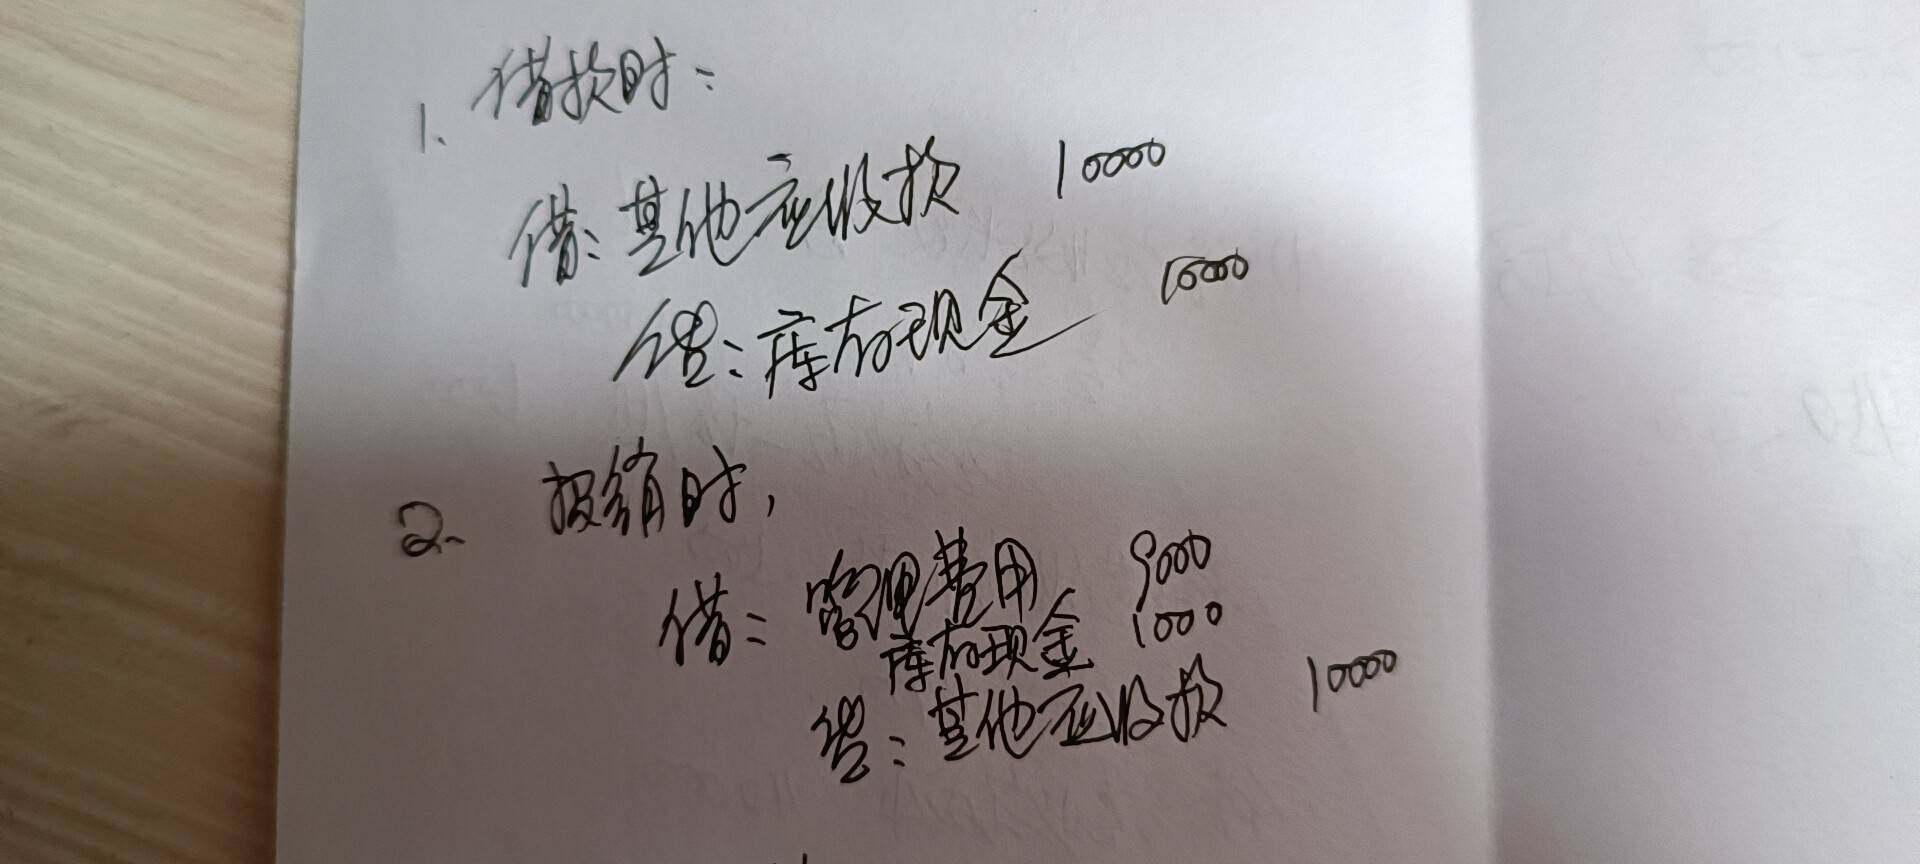 1. 借款时:
借:其他应收款 10000
贷:库存现金 10000
2. 报销时,
借:管理费用 9000
库存现金 1000
贷:其他应收款 10000